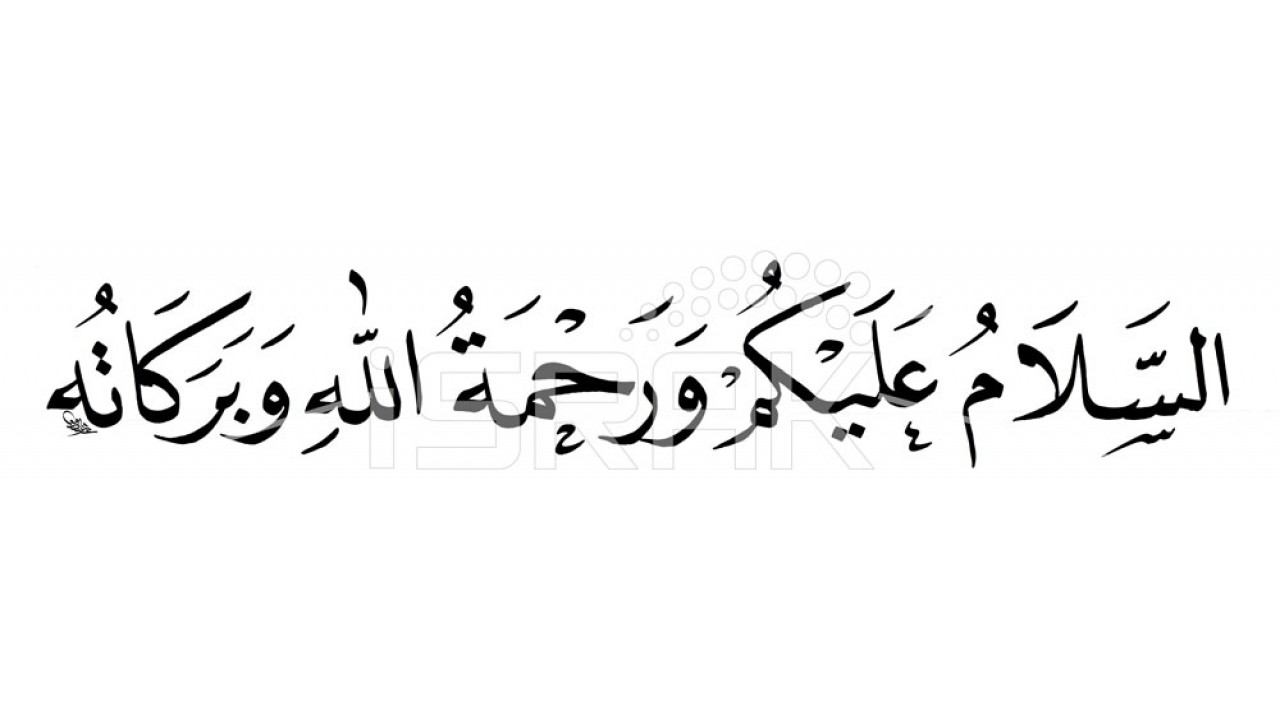 السَّلَامُ عَلَيْكُمْ وَرَحْمَةُ اللّٰهِ وَبَرَكَاتُه
ISRAK